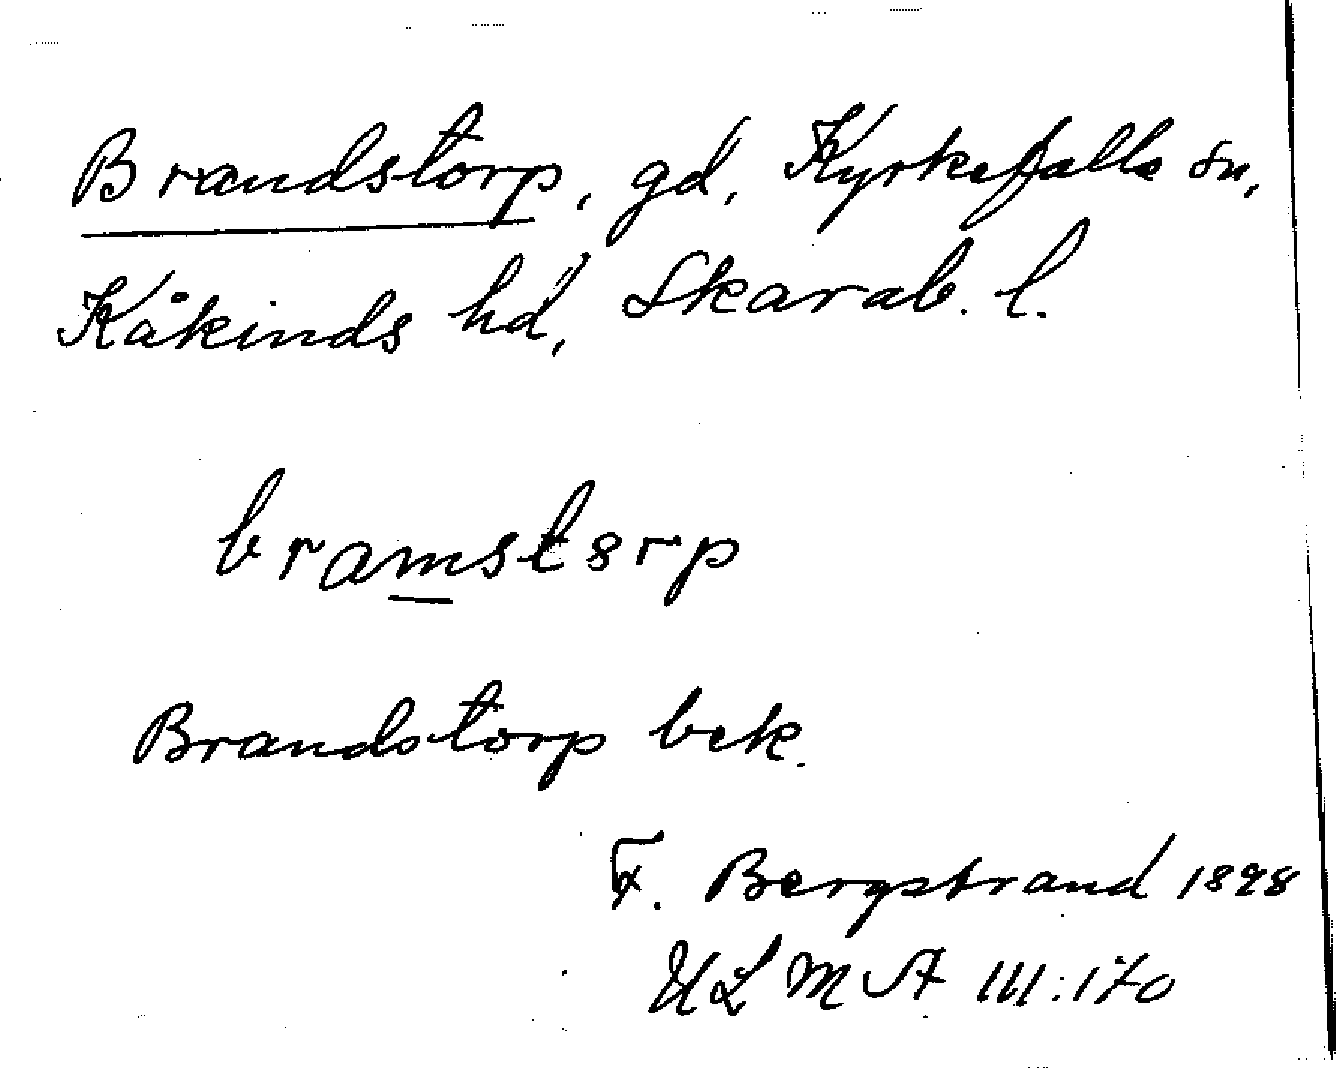 Brandstorp, gd, Kyrkefalla sn,
Kåkinds hd, Skarab. l.
bramstorp
Brandstorp bek.
F. Bergstrand 1898
ULMA 111:170